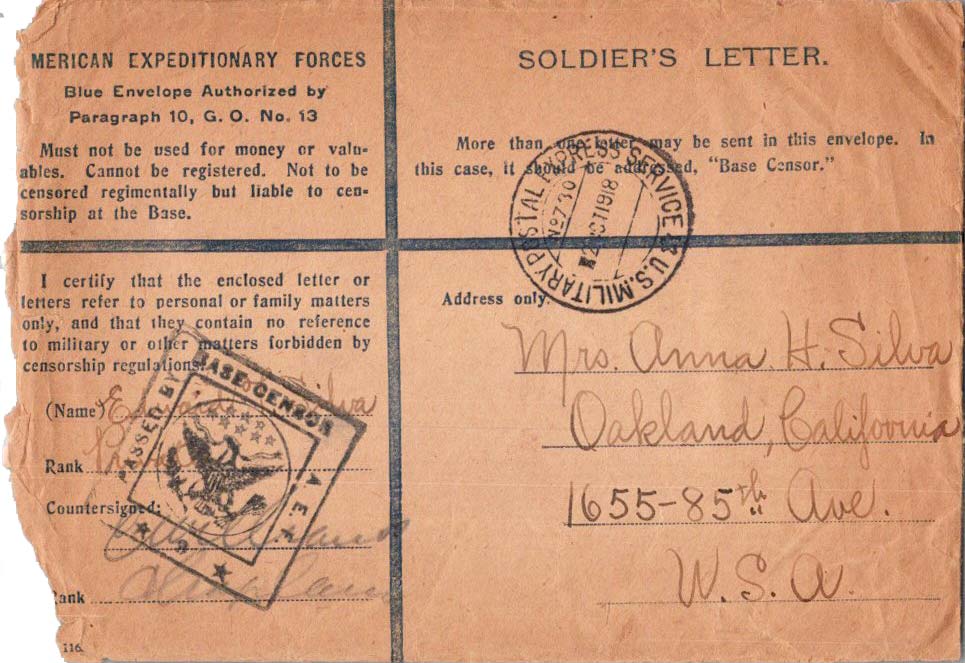 MERICAN EXPEDITIONARY FORCES
Blue Envelope Authorized by
Paragraph 10, G. O. No. 13
Must not be used for money or valu-
ables. Cannot be registered. Not to be
censored regimentally but liable to cen-
sorship at the Base.
SOLDIER'S LETTER.
More than one letter may be sent in this envelope. In
this case, it should be addressed, "Base Censor."
U.S. MILITARY POSTAL EXPRESS SERVICE
No 730
OCT 1918
I certify that the enclosed letter or
letters refer to personal or family matters
only, and that they contain no reference
to military or other matters forbidden by
censorship regulations.
(Name) Silva
Rank
Countersigned:
ank
116
PASSED BY BASE CENSOR A. E. F.
Address only.
Mrs. Anna H. Silva
Oakland, California
1655-85th Ave.
U.S.A.